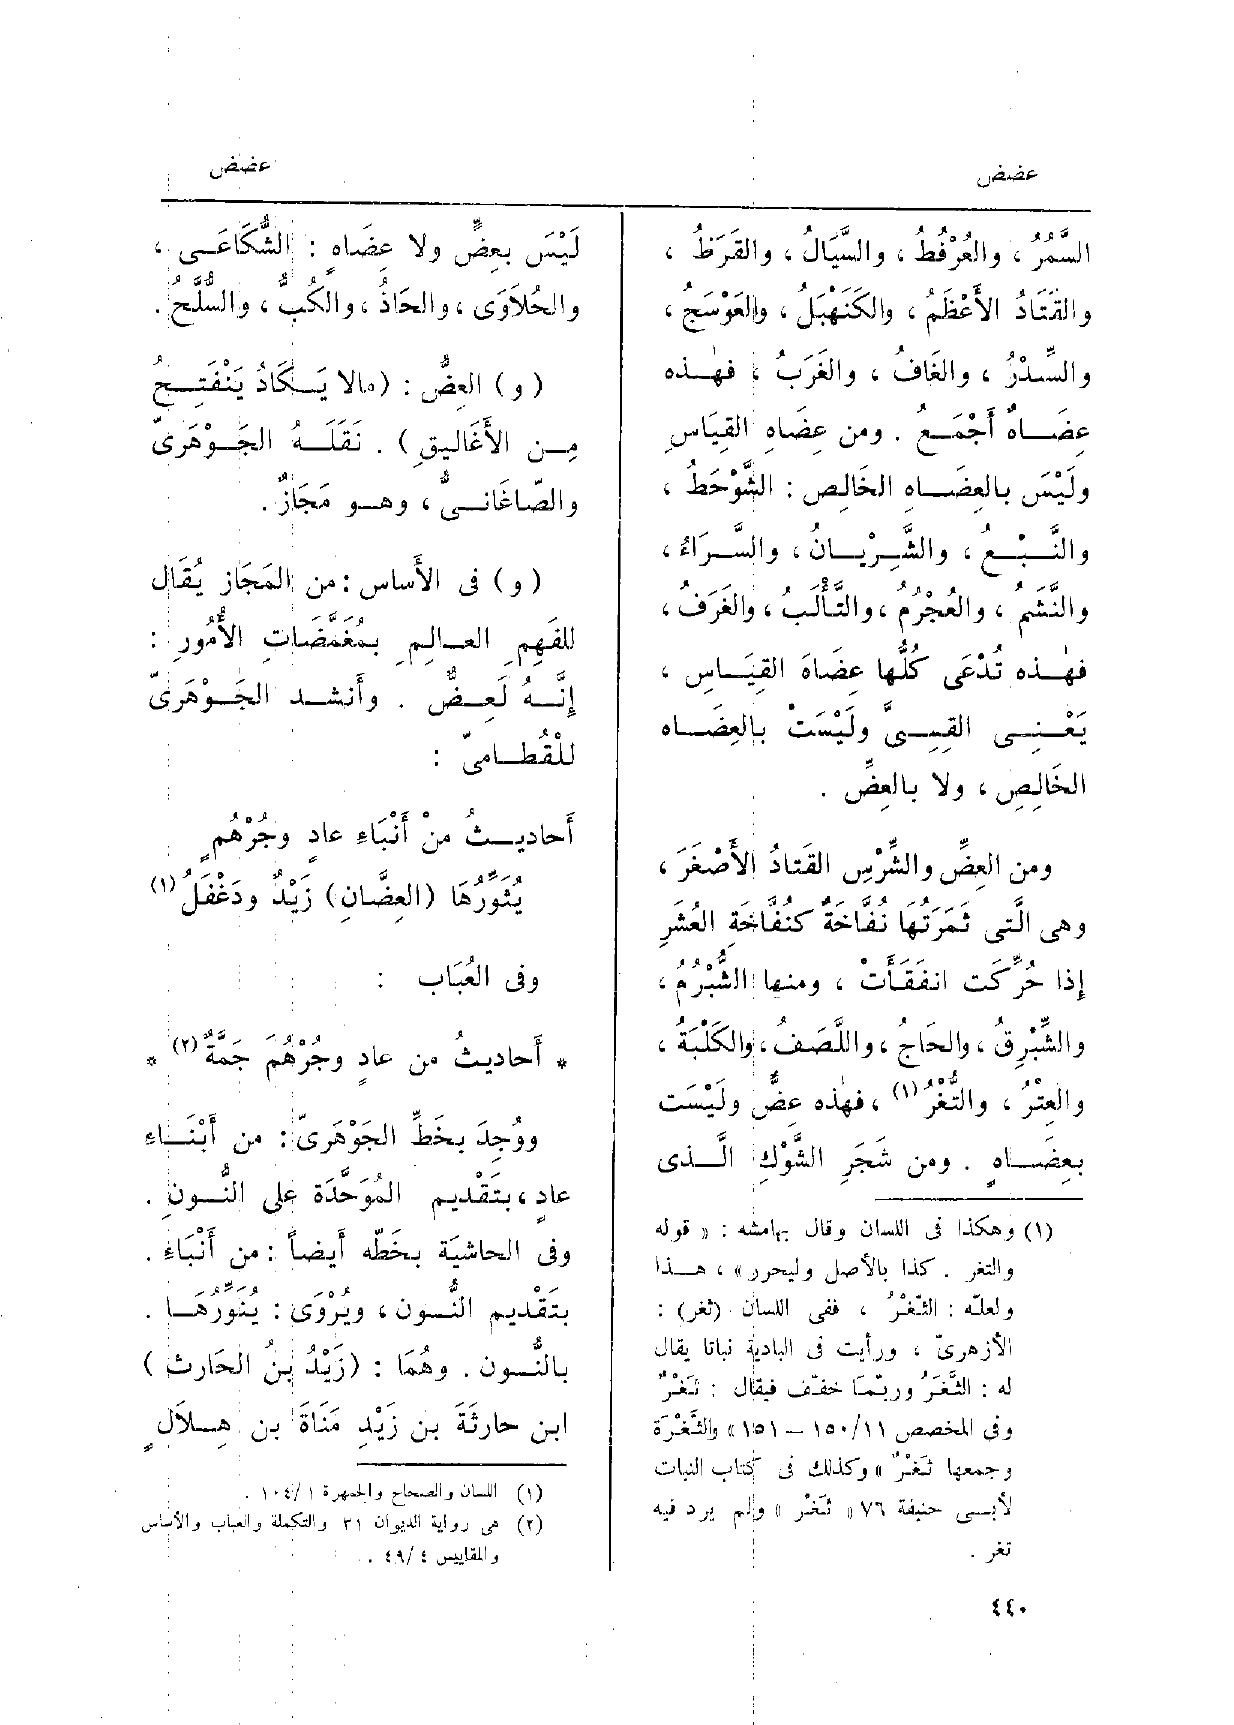 عضض
عضض
السَّمُرُ ، والعُرْفُطُ ، والسَّيَالُ ، والقَرَظُ ،
والقَتَادُ الأَعْظَمُ ، والكَنَهْبَلُ ، والعَوْسَجُ ،
والسِّدْرُ ، والغَافُ ، والغَرَبُ ، فهٰذه
عِضَاهٌ أَجْمَعُ . ومن عِضَاهِ القِيَاسِ
ولَيْسَ بالعِضَاهِ الخالِصِ : الشَّوْحَطُ ،
والنَّبْعُ ، والشَّرْيَانُ ، والسَّرَاءُ ،
والنَّشَمُ ، والعُجْرُمُ ، والتَّأْلَبُ ، والغَرَفُ ،
فهٰذه تُدْعَى كُلُّها عِضَاهَ القِيَاسِ ،
يَعْنِى القِسِىَّ ولَيْسَتْ بالعِضَاه
الخَالِصِ ، ولا بالعِضِّ .
ومن العِضِّ والشِّرْسِ القَتَادُ الأَصْغَرَ ،
وهى الَّتى ثَمَرَتُهَا نُفَّاخَةٌ كنُفَّاخَةِ العُشَرِ
إذا حُرِّكَت انفَقَأَتْ ، ومنها الشُّبْرُمُ ،
والشِّبْرِقُ ، والحَاجُ ، واللَّصَفُ ، والكَلْبَةُ ،
والعِتْرُ ، والتُّغْرُ (١) ، فهٰذه عِضٌّ ولَيْسَت
بعِضَاهٍ . ومن شَجَرِ الشَّوْكِ الَّذى
(١) وهكذا فى اللسان وقال بهامشه : « قوله
والتغر . كذا بالأصل وليحرر » ، هذا
ولعلّه : الثَّغْرُ ، ففى اللسان (ثغر) :
الأزهرىّ ، ورأيت فى البادية نباتا يقال
له : الثَّغَرُ وربّما خفّف فيقال : ثَغْرٌ
وفى المخصص ١١/١٥٠ – ١٥١ « والثَّغْرَة
وجمعها ثَغْرٌ » وكذلك فى كتاب النبات
لأبى حنيفة ٧٦ « ثَغْر » ولم يرد فيه
تغر .
لَيْسَ بعِضٍّ ولا عِضَاهٍ : الشُّكَاعَى ،
والحُلاَوَى ، والحَاذُ ، والكُبُّ ، والسُّلَّحُ .
( و ) العِضُّ : (مالا يَكَادُ يَنْفَتِحُ
مِن الأَغَالِيقِ ) . نَقَلَهُ الجَوْهَرِىّ
والصّاغَانىُّ ، وهو مَجَازٌ .
( و ) فى الأَساس : من المَجَازِ يُقَال
للفَهِمِ العالِمِ بمُغَمَّضَاتِ الأُمُورِ :
إِنَّهُ لَعِضٌّ . وأَنشد الجَوْهَرِىّ
للْقُطَامِىّ :
أَحاديثُ مِنْ أَنْبَاءِ عادٍ وجُرْهُمٍ
يُثَوِّرُهَا (العِضَّانِ) زَيْدٌ ودَغْفَلُ (١)
وفى العُبَاب :
* أَحاديثُ من عادٍ وجُرْهُمَ جَمَّةٌ (٢) *
ووُجِدَ بخَطِّ الجَوْهَرِىّ : من أَبْنَاءِ
عادٍ ، بتَقْدِيمِ المُوَحَّدَة على النُّونِ .
وفى الحاشِيَة بخَطِّه أَيضاً : من أَنْبَاءِ .
بتَقْدِيمِ النُّون ، ويُرْوَى : يُنَوِّرُهَا .
بالنُّون . وهُمَا : (زَيْدُ بنُ الحَارِث )
ابن حارِثَةَ بن زَيْدِ مَنَاةَ بن هِلاَلِ
(١) اللسان والصحاح والجمهرة ١/١٠٤ .
(٢) هى رواية الديوان ٣١ والتكملة والعباب والأساس
والمقاييس ٤/٤٩ .
٤٤٠